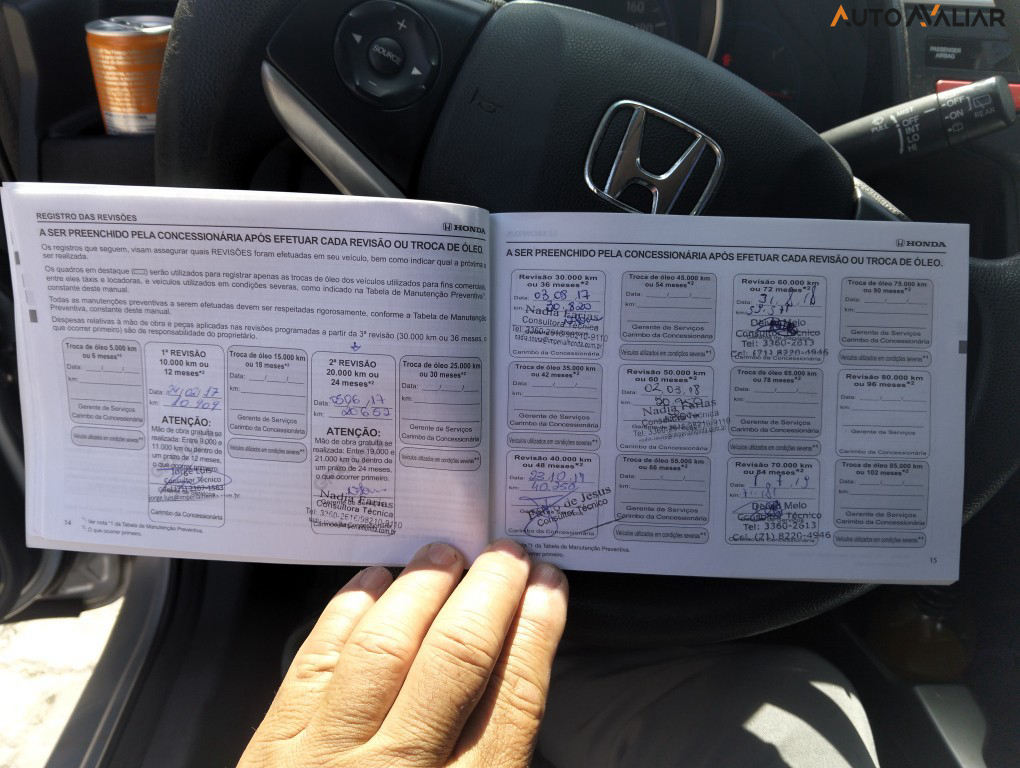 AUTOAVALIAR
SOURCE
PASSENGER
AIRBAG
OFF
INT
LO
HI
OFF
ON
REAR
REGISTRO DAS REVISÕES
HONDA
A SER PREENCHIDO PELA CONCESSIONÁRIA APÓS EFETUAR CADA REVISÃO OU TROCA DE ÓLEO.
Os registros que seguem, visam assegurar quais REVISÕES foram efetuadas em seu veículo, bem como indicar qual a próxima a
ser realizada.
Os quadros em destaque serão utilizados para registrar apenas as trocas de óleo dos veículos utilizados para fins comerciais
entre eles táxis e locadoras, e veículos utilizados em condições severas, como indicado na Tabela de Manutenção Preventiva*¹
constante deste manual.
Todas as manutenções preventivas a serem efetuadas devem ser respeitadas rigorosamente, conforme a Tabela de Manutenção
Preventiva, constante deste manual.
Despesas relativas à mão de obra e peças aplicadas nas revisões programadas a partir da 3ª revisão (30.000 km ou 36 meses, o
que ocorrer primeiro) são de responsabilidade do proprietário.
Troca de óleo 5.000
km ou 6 meses*²
Data:
km:
Gerente de Serviços
Carimbo da Concessionária
Veículos utilizados em condições severas*¹
1ª REVISÃO
10.000 km ou
12 meses*²
Data:
km: 10.909
ATENÇÃO:
Mão de obra gratuita se
realizada: Entre 9.000 e
11.000 km ou dentro de
um prazo de 12 meses,
o que ocorrer primeiro.
Jorge Luis
Consultor Técnico
Carimbo da Concessionária
Troca de óleo 15.000 km
ou 18 meses*²
Data:
km:
Gerente de Serviços
Carimbo da Concessionária
Veículos utilizados em condições severas*¹
2ª REVISÃO
20.000 km ou
24 meses*²
Data: 05 06 17
km: 20652
ATENÇÃO:
Mão de obra gratuita se
realizada: Entre 19.000 e
21.000 km ou dentro de
um prazo de 24 meses,
o que ocorrer primeiro.
Nadia Farias
Consultora Técnica
Troca de óleo 25.000 km
ou 30 meses*²
Data:
km:
Gerente de Serviços
Carimbo da Concessionária
Veículos utilizados em condições severas*¹
14
*¹ Ver nota *1 da Tabela de Manutenção Preventiva.
*² O que ocorrer primeiro.
HONDA
A SER PREENCHIDO PELA CONCESSIONÁRIA APÓS EFETUAR CADA REVISÃO OU TROCA DE ÓLEO.
Revisão 30.000 km
ou 36 meses*²
Data: 03 08 17
km: 30.820
Nadia Farias
Consultora Técnica
Carimbo da Concessionária
Troca de óleo 45.000 km
ou 54 meses*²
Data:
km:
Gerente de Serviços
Carimbo da Concessionária
Veículos utilizados em condições severas*¹
Revisão 60.000 km
ou 72 meses*²
Data:
km:
Melo
Consultor Técnico
Tel: 3360-2613
Cel: (21) 8220-4946
Troca de óleo 75.000 km
ou 90 meses*²
Data:
km:
Gerente de Serviços
Carimbo da Concessionária
Veículos utilizados em condições severas*¹
Troca de óleo 35.000 km
ou 42 meses*²
Data:
km:
Gerente de Serviços
Carimbo da Concessionária
Veículos utilizados em condições severas*¹
Revisão 50.000 km
ou 60 meses*²
Data: 02 03 18
km:
Nadia Farias
Consultora Técnica
Troca de óleo 65.000 km
ou 78 meses*²
Data:
km:
Gerente de Serviços
Carimbo da Concessionária
Veículos utilizados em condições severas*¹
Revisão 80.000 km
ou 96 meses*²
Data:
km:
Gerente de Serviços
Carimbo da Concessionária
Revisão 40.000 km
ou 48 meses*²
Data: 23 10 17
km:
de Jesus
Consultor Técnico
Carimbo da Concessionária
Troca de óleo 55.000 km
ou 66 meses*²
Data:
km:
Gerente de Serviços
Carimbo da Concessionária
Veículos utilizados em condições severas*¹
Revisão 70.000 km
ou 84 meses*²
Data:
km:
Melo
Consultor Técnico
Tel: 3360-2613
Cel: (21) 8220-4946
Troca de óleo 85.000 km
ou 102 meses*²
Data:
km:
Gerente de Serviços
Carimbo da Concessionária
Veículos utilizados em condições severas*¹
*1 da Tabela de Manutenção Preventiva.
primeiro.
15